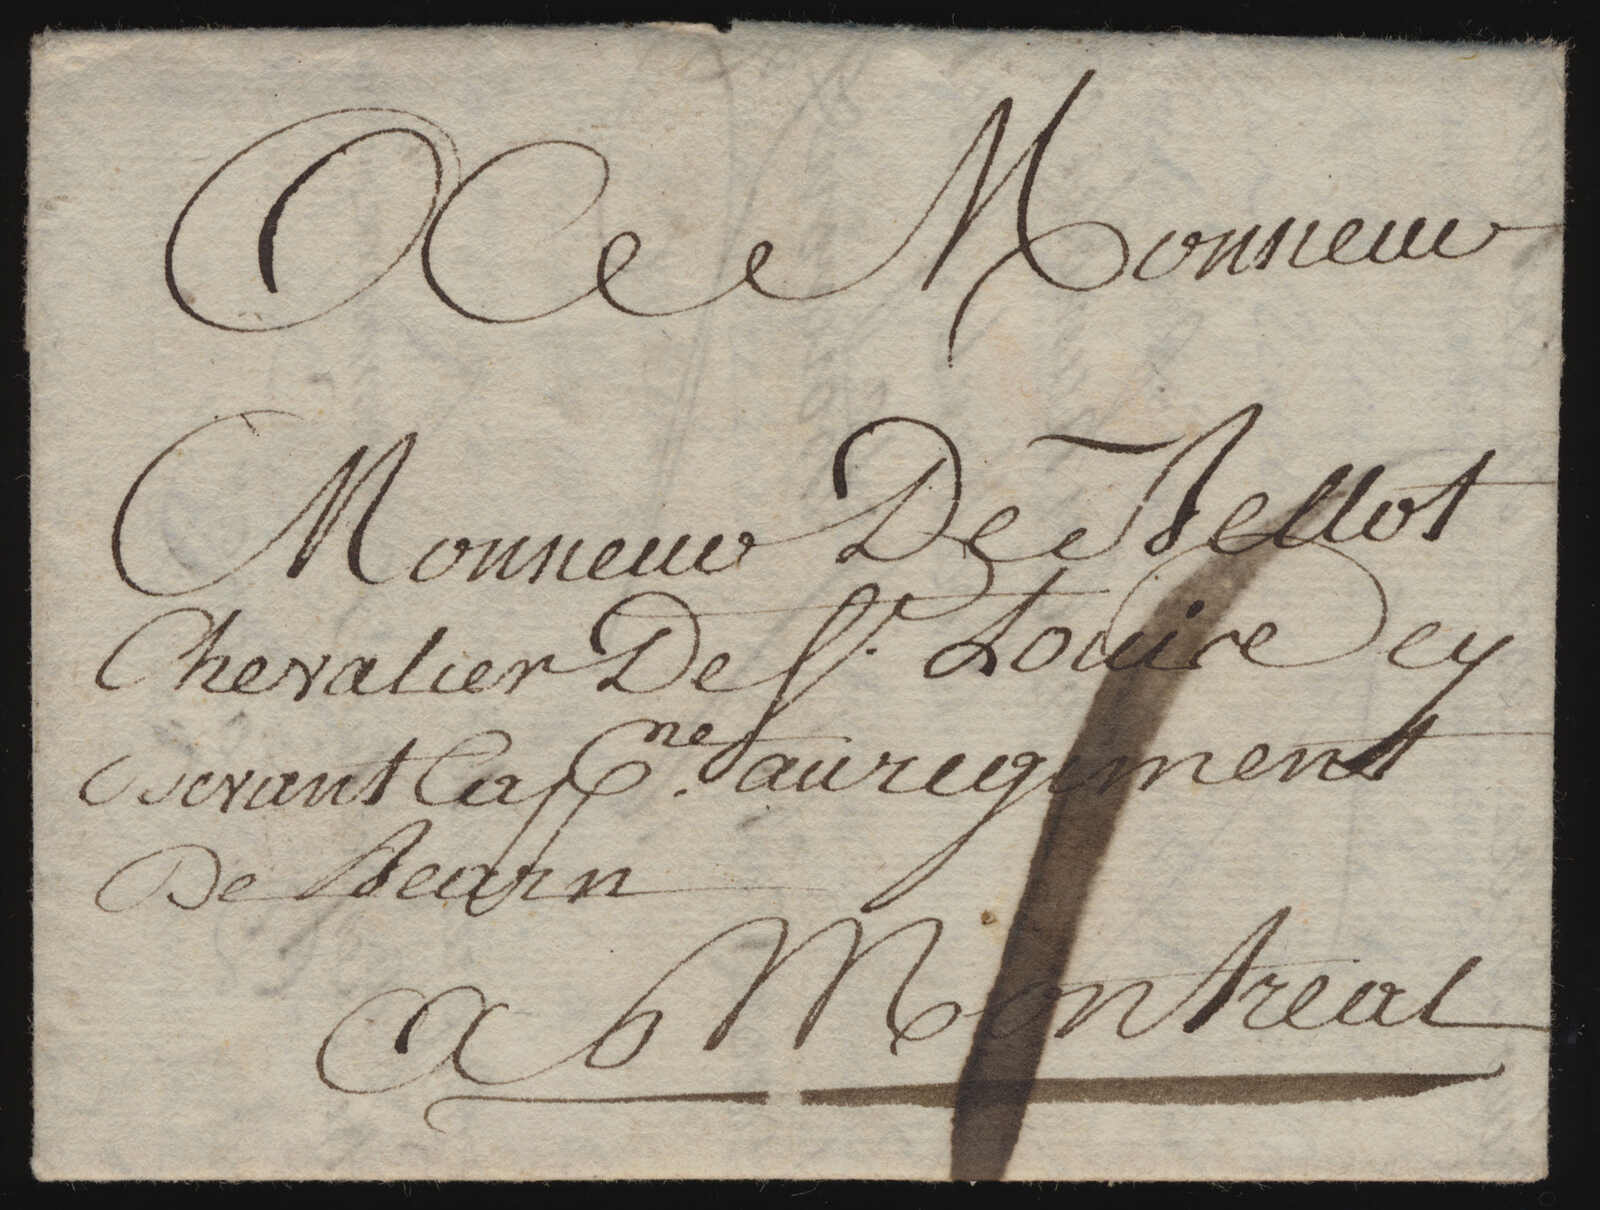 A Monsieur
Monsieur De Bellot
Chevalier De St. Louis Cy
Devant Capne. au regiment
De Bearn
a Montreal